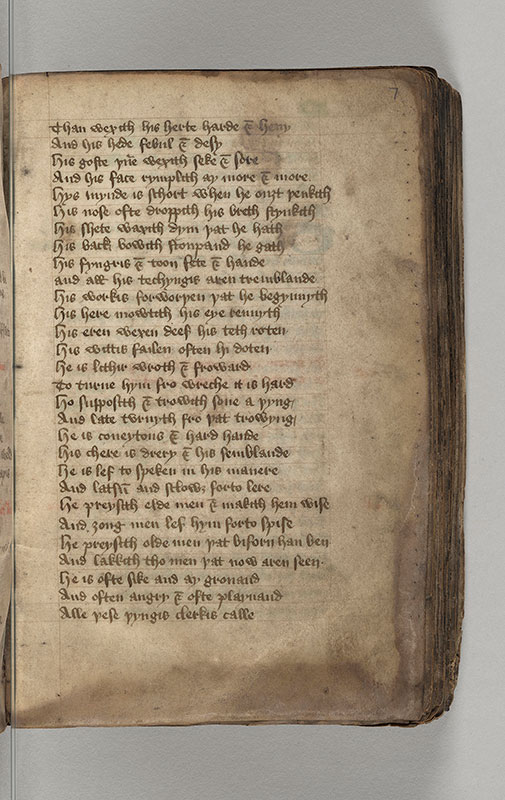 7
Than wexith his herte harde & heuy
And his hede febul & desy
His goste þane wexith seke & sore
And his face rymplith ay more & more
Hys mynde is schort when he ouȝt þenkith
His nose ofte droppith his breth stynkith
His shete waxith dym þat he hath
His back bowith stoupand he gath
His fyngris & toon fete & hande
and all his techyngis aren tremblande
His workis forworþen þat he begynnyth
His here mowtith his eye rennyth
His eren wexen deef his teth roten
His wittis failen often hi doten
He is lithir wroth & froward
To turne hym fro wreche it is hard
Ho supposith & trowith sone a þyng
And late turnyth fro þat trowyng
He is coueytous & hard hande
His chere is drery & his semblande
He is lef to speken in his manere
And latsum and sclowȝ forto lere
He preysith elde men & makith hem wise
And ȝong men lef hym forto spise
He preysith olde men þat biforn han ben
And lakkith tho men þat now aren seen
He is ofte sike and ay gronand
And often angry & ofte playnand
Alle þese þyngis clerkis calle